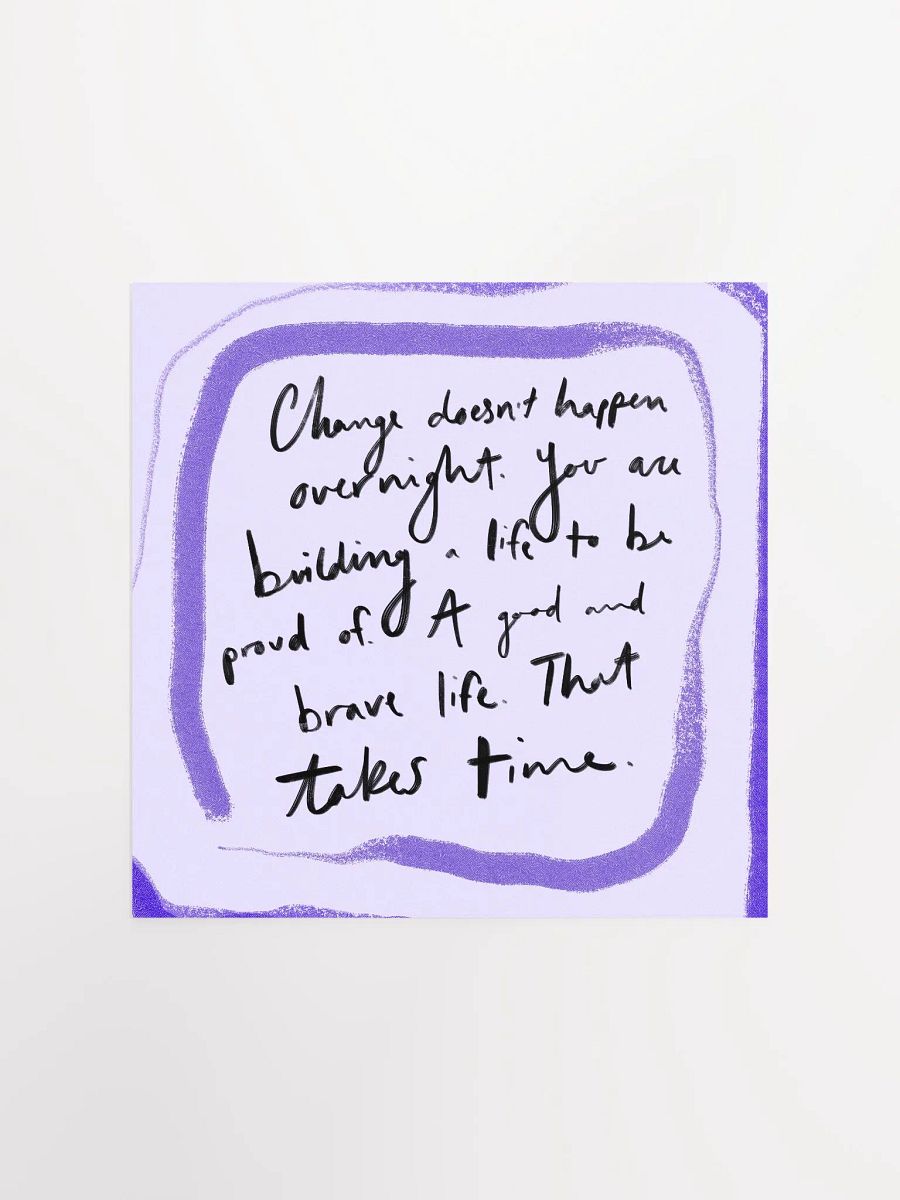 Change doesn't happen
overnight. You are
building a life to be
proud of. A good and
brave life. That
takes time.